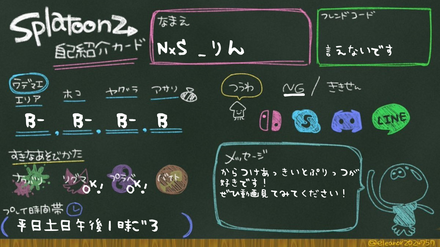 Splatoon2
自己紹介カード
なまえ
NxS _りん
フレンドコード
言えないです
ウデマエ
エリア
ホコ
ヤグラ
アサリ
B-
B-
B-
B-
つうわ
NG / ききせん
S
LINE
すきなあそびかた
ナワバリ
リグマ
OK!
プラベ
OK!
バイト
プレイ時間帯
(平日土日午後1時ごろ)
メッセージ
からつけあっきいとぷりっつが
好きです!
ぜひ動画見てみてください!